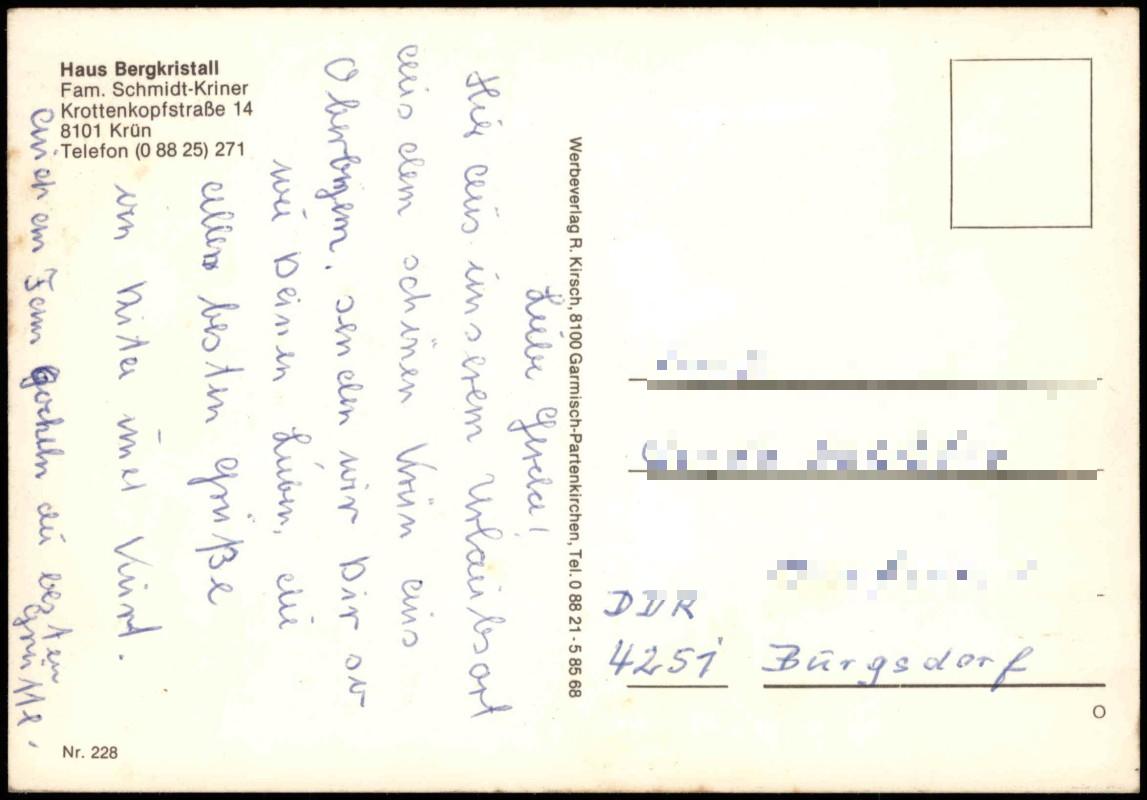 Haus Bergkristall
Fam. Schmidt-Kriner
Krottenkopfstraße 14
8101 Krün
Telefon (0 88 25) 271
Liebe Gerda!
Hier aus unserem Urlaubsort
aus dem schönen Krün aus
Oberbayern, senden wir Dir so
wie Deinen Lieben, die
aller besten Grüße
von Rita und Kurt.
auch an Fam die besten
Grüße.
Nr. 228
Werbeverlag R. Kirsch, 8100 Garmisch-Partenkirchen, Tel. 0 88 21 - 5 85 68
DDR
4251 Burgsdorf